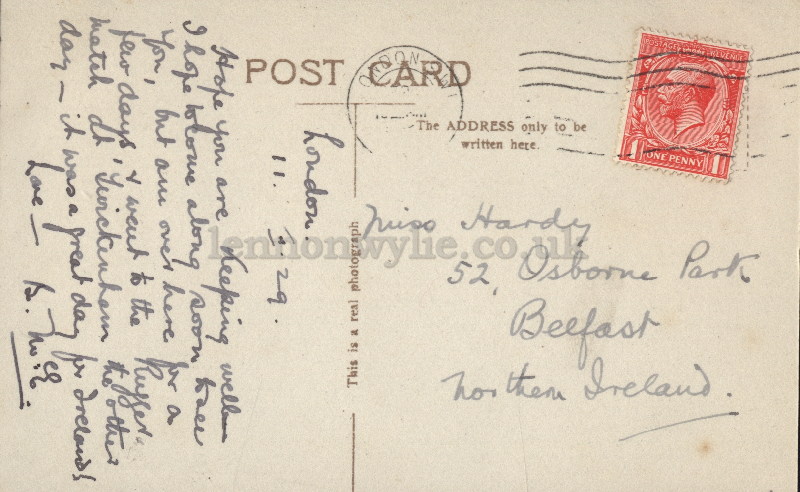 POST CARD
The ADDRESS only to be
written here.
POSTAGE REVENUE
1 ONE PENNY 1
LONDON
This is a real photograph
London.
11. 2. 29.
Hope you are keeping well—
I hope to come along soon to see
you, but am over here for a
few days, & went to the Rugger
match at Twickenham the other
day — it was a great day for Ireland!
Love —
Miss Hardy
52, Osborne Park
Belfast
Northern Ireland.
lennonwylie.co.uk